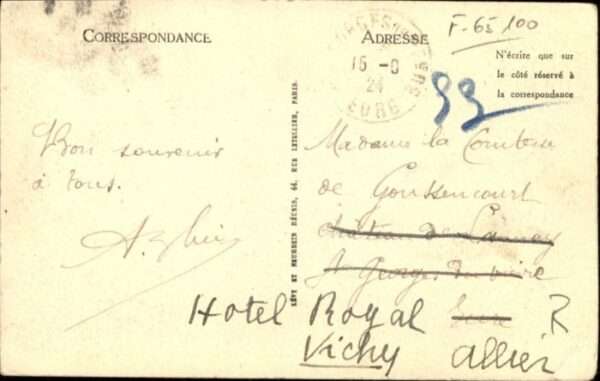 CORRESPONDANCE
ADRESSE
F-65 100
N'écrire que sur
le côté réservé à
la correspondance
16 -9
24
EURE
93
Bon souvenir
à tous.
LÉVY ET NEURDEIN RÉUNIS, 44, RUE LETELLIER, PARIS.
Madame la Comtesse
de Goussencourt
Château de
St Georges du Vièvre
Eure
Hotel Royal R
Vichy Allier